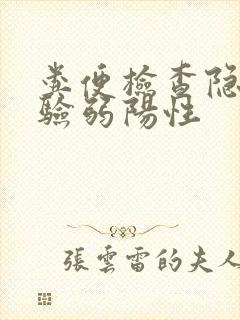 粪便檢查隐
驗弱陽性
張雲雷的夫人